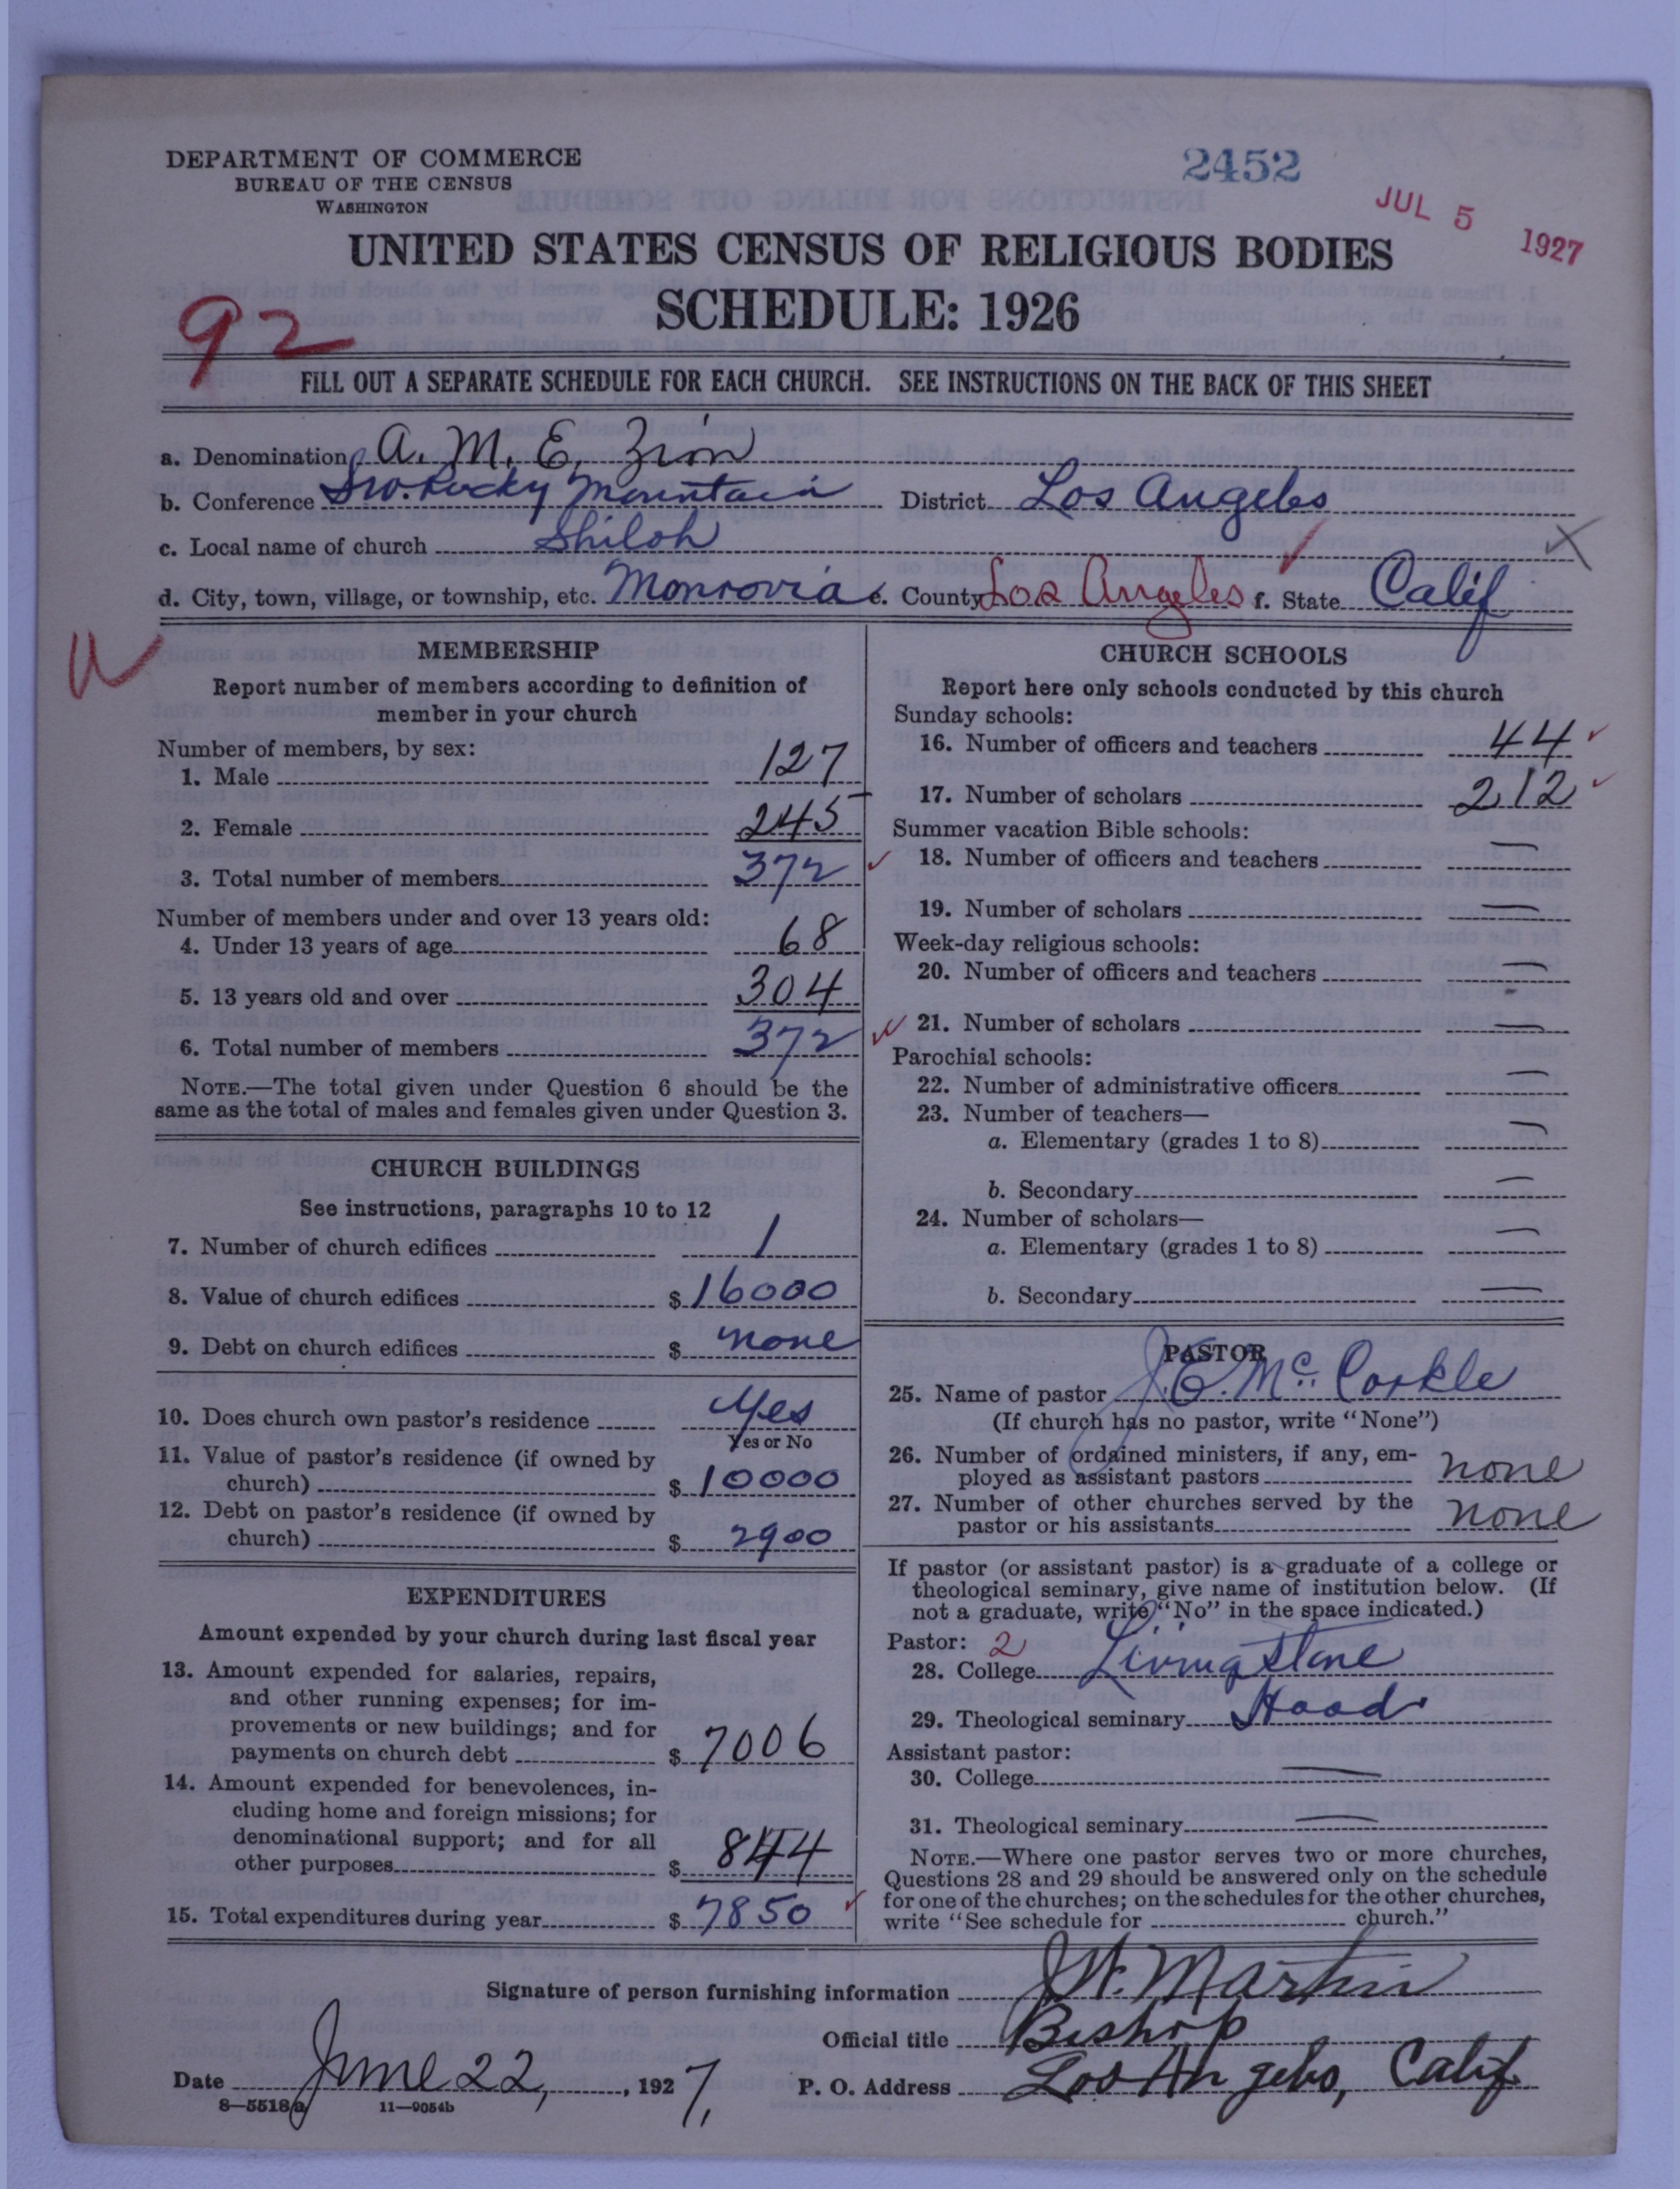 DEPARTMENT OF COMMERCE
BUREAU OF THE CENSUS
WASHINGTON
2452
JUL 5 1927
UNITED STATES CENSUS OF RELIGIOUS BODIES
SCHEDULE: 1926
92
FILL OUT A SEPARATE SCHEDULE FOR EACH CHURCH. SEE INSTRUCTIONS ON THE BACK OF THIS SHEET
a. Denomination A. M. E. Zion
b. Conference Sw. Rocky Mountain District Los Angeles
c. Local name of church Shiloh
d. City, town, village, or township, etc. Monrovia e. County Los Angeles f. State Calif
MEMBERSHIP
Report number of members according to definition of
member in your church
Number of members, by sex:
1. Male 127
2. Female 245
3. Total number of members 372
Number of members under and over 13 years old:
4. Under 13 years of age 68
5. 13 years old and over 304
6. Total number of members 372
NOTE.—The total given under Question 6 should be the
same as the total of males and females given under Question 3.
CHURCH BUILDINGS
See instructions, paragraphs 10 to 12
7. Number of church edifices 1
8. Value of church edifices $ 16000
9. Debt on church edifices $ none
10. Does church own pastor's residence Yes
Yes or No
11. Value of pastor's residence (if owned by
church) $ 10000
12. Debt on pastor's residence (if owned by
church) $ 2900
EXPENDITURES
Amount expended by your church during last fiscal year
13. Amount expended for salaries, repairs,
and other running expenses; for im-
provements or new buildings; and for
payments on church debt $ 7006
14. Amount expended for benevolences, in-
cluding home and foreign missions; for
denominational support; and for all
other purposes $ 844
15. Total expenditures during year $ 7850
CHURCH SCHOOLS
Report here only schools conducted by this church
Sunday schools:
16. Number of officers and teachers 44
17. Number of scholars 212
Summer vacation Bible schools:
18. Number of officers and teachers —
19. Number of scholars —
Week-day religious schools:
20. Number of officers and teachers —
21. Number of scholars —
Parochial schools:
22. Number of administrative officers —
23. Number of teachers—
a. Elementary (grades 1 to 8) —
b. Secondary —
24. Number of scholars—
a. Elementary (grades 1 to 8) —
b. Secondary —
PASTOR
25. Name of pastor J. E. Mc. Corkle
(If church has no pastor, write "None")
26. Number of ordained ministers, if any, em-
ployed as assistant pastors none
27. Number of other churches served by the
pastor or his assistants none
If pastor (or assistant pastor) is a graduate of a college or
theological seminary, give name of institution below. (If
not a graduate, write "No" in the space indicated.)
Pastor: 2
28. College Livingstone
29. Theological seminary Hood
Assistant pastor:
30. College —
31. Theological seminary —
NOTE.—Where one pastor serves two or more churches,
Questions 28 and 29 should be answered only on the schedule
for one of the churches; on the schedules for the other churches,
write "See schedule for church."
Signature of person furnishing information J. W. Martin
Official title Bishop
Date June 22, 1927, P. O. Address Los Angeles, Calif.
8—5518a 11—9054b